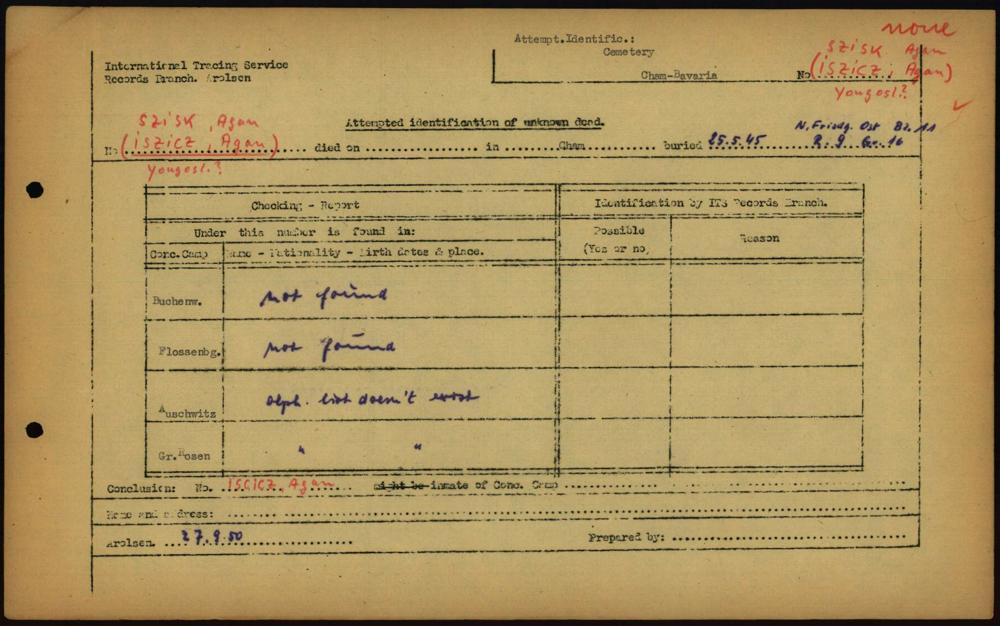 none
Attempt.Identific.:
Cemetery
SZISK Agan
International Tracing Service
Records Branch. Arolsen
Cham-Bavaria No (ISZICZ, Agan)
Yougosl.?
SZISK, Agan
Attempted identification of unknown dead.
N. Friedg. Ost Bz. 11
No (ISZICZ, Agan) died on in Cham buried 25.5.45 R. 9 Gr. 16
Yougosl.?
Checking - Report Identification by ITS Records Branch.
Under this number is found in: Possible Reason
Conc.Camp Name - Nationality - Birth dates & place. (Yes or no)
Buchenw. not found
Flossenbg. not found
Auschwitz alph. list doesn't exist
Gr.Rosen " "
Conclusion: No. ISCICZ, Agan might be inmate of Conc. Camp
Name and address:
Arolsen. 27.9.50 Prepared by: